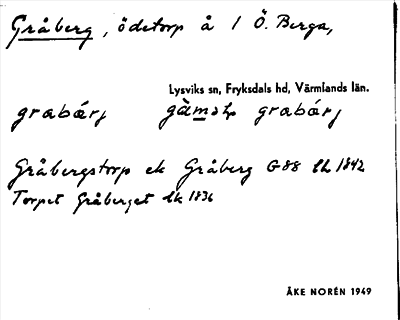 Gråberg, ödetorp å 1 Ö. Berga,
Lysviks sn, Fryksdals hd, Värmlands län.
grabárj gàmalt grabárj
Gråbergstorp ek Gråberg G88 lh 1842
Torpet Gråberget lk 1836
ÅKE NORÉN 1949